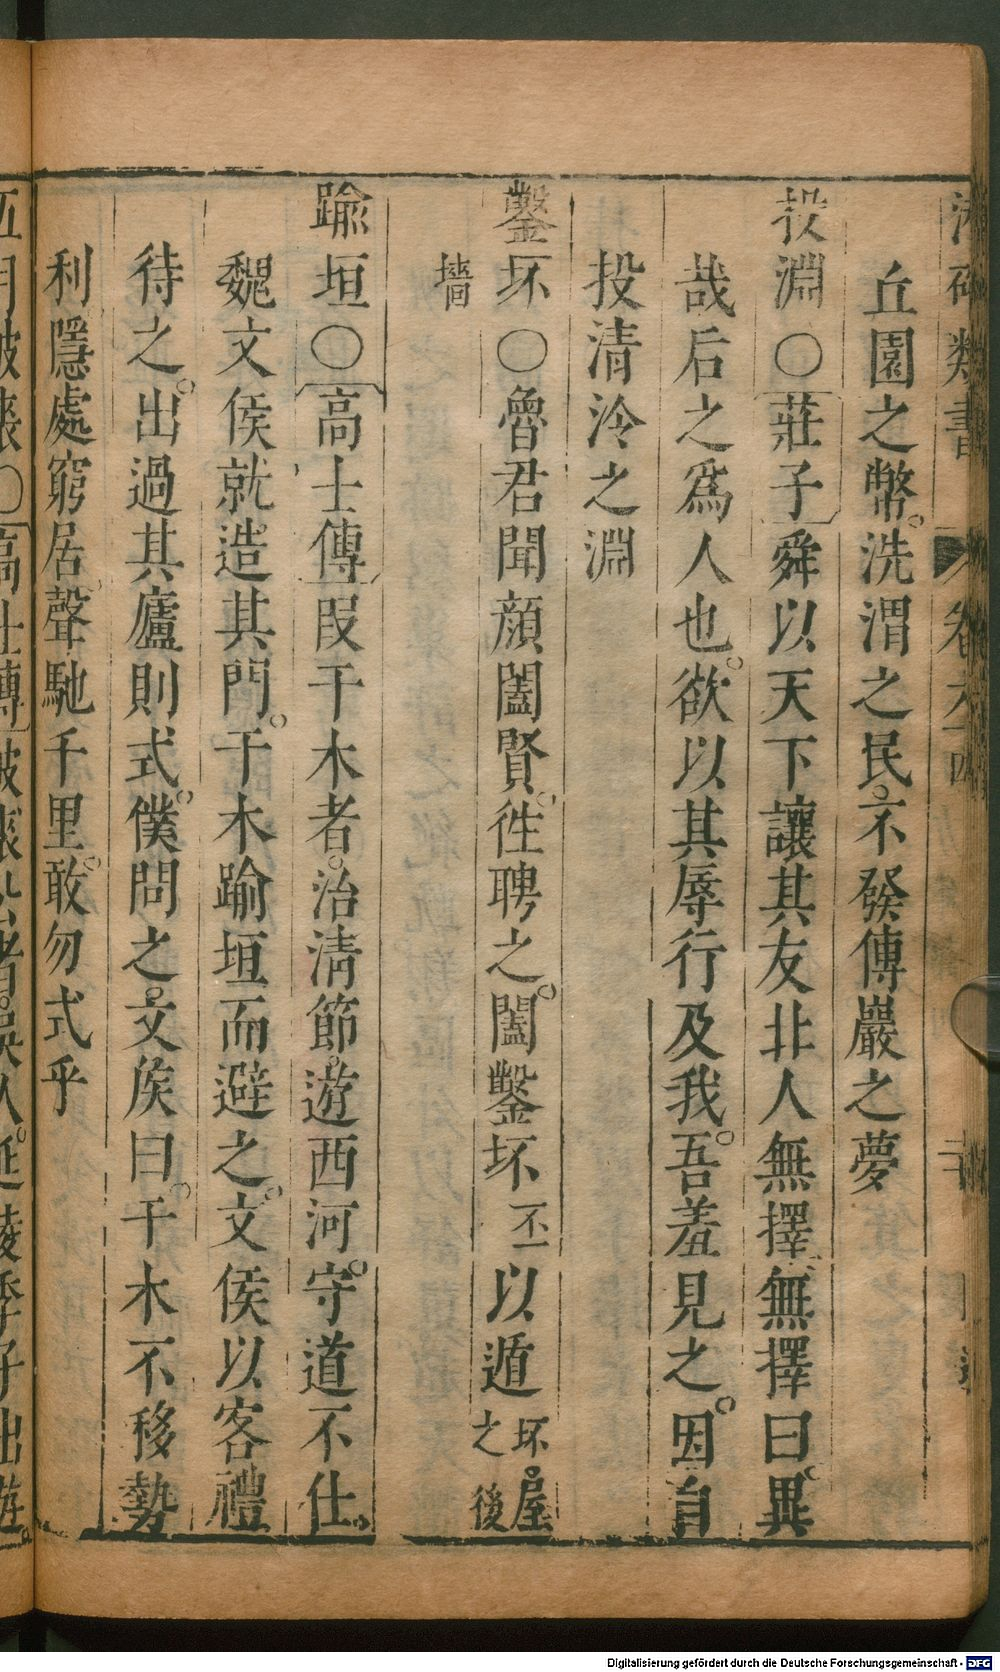 類書 卷六十四
丘園之幣。洗渭之民。不發傅巖之夢
投淵〇莊子舜以天下讓其友北人無擇。無擇曰。異
哉后之爲人也。欲以其辱行及我。吾羞見之。因自
投清泠之淵
鑿坏〇魯君聞顔闔賢。徃聘之。闔鑿坏不一以遁坏。屋之後
墻
踰垣〇高士傳叚干木者。治清節。遊西河。守道不仕。
魏文侯就造其門。干木踰垣而避之。文侯以客禮
待之。出過其廬則式。僕問之。文侯曰。干木不移勢
利隱處窮居。聲馳千里。敢勿式乎
五月披裘〇高士傳披裘公者。吳人。延陵季子出遊。
Digitalisierung gefördert durch die Deutsche Forschungsgemeinschaft - DFG